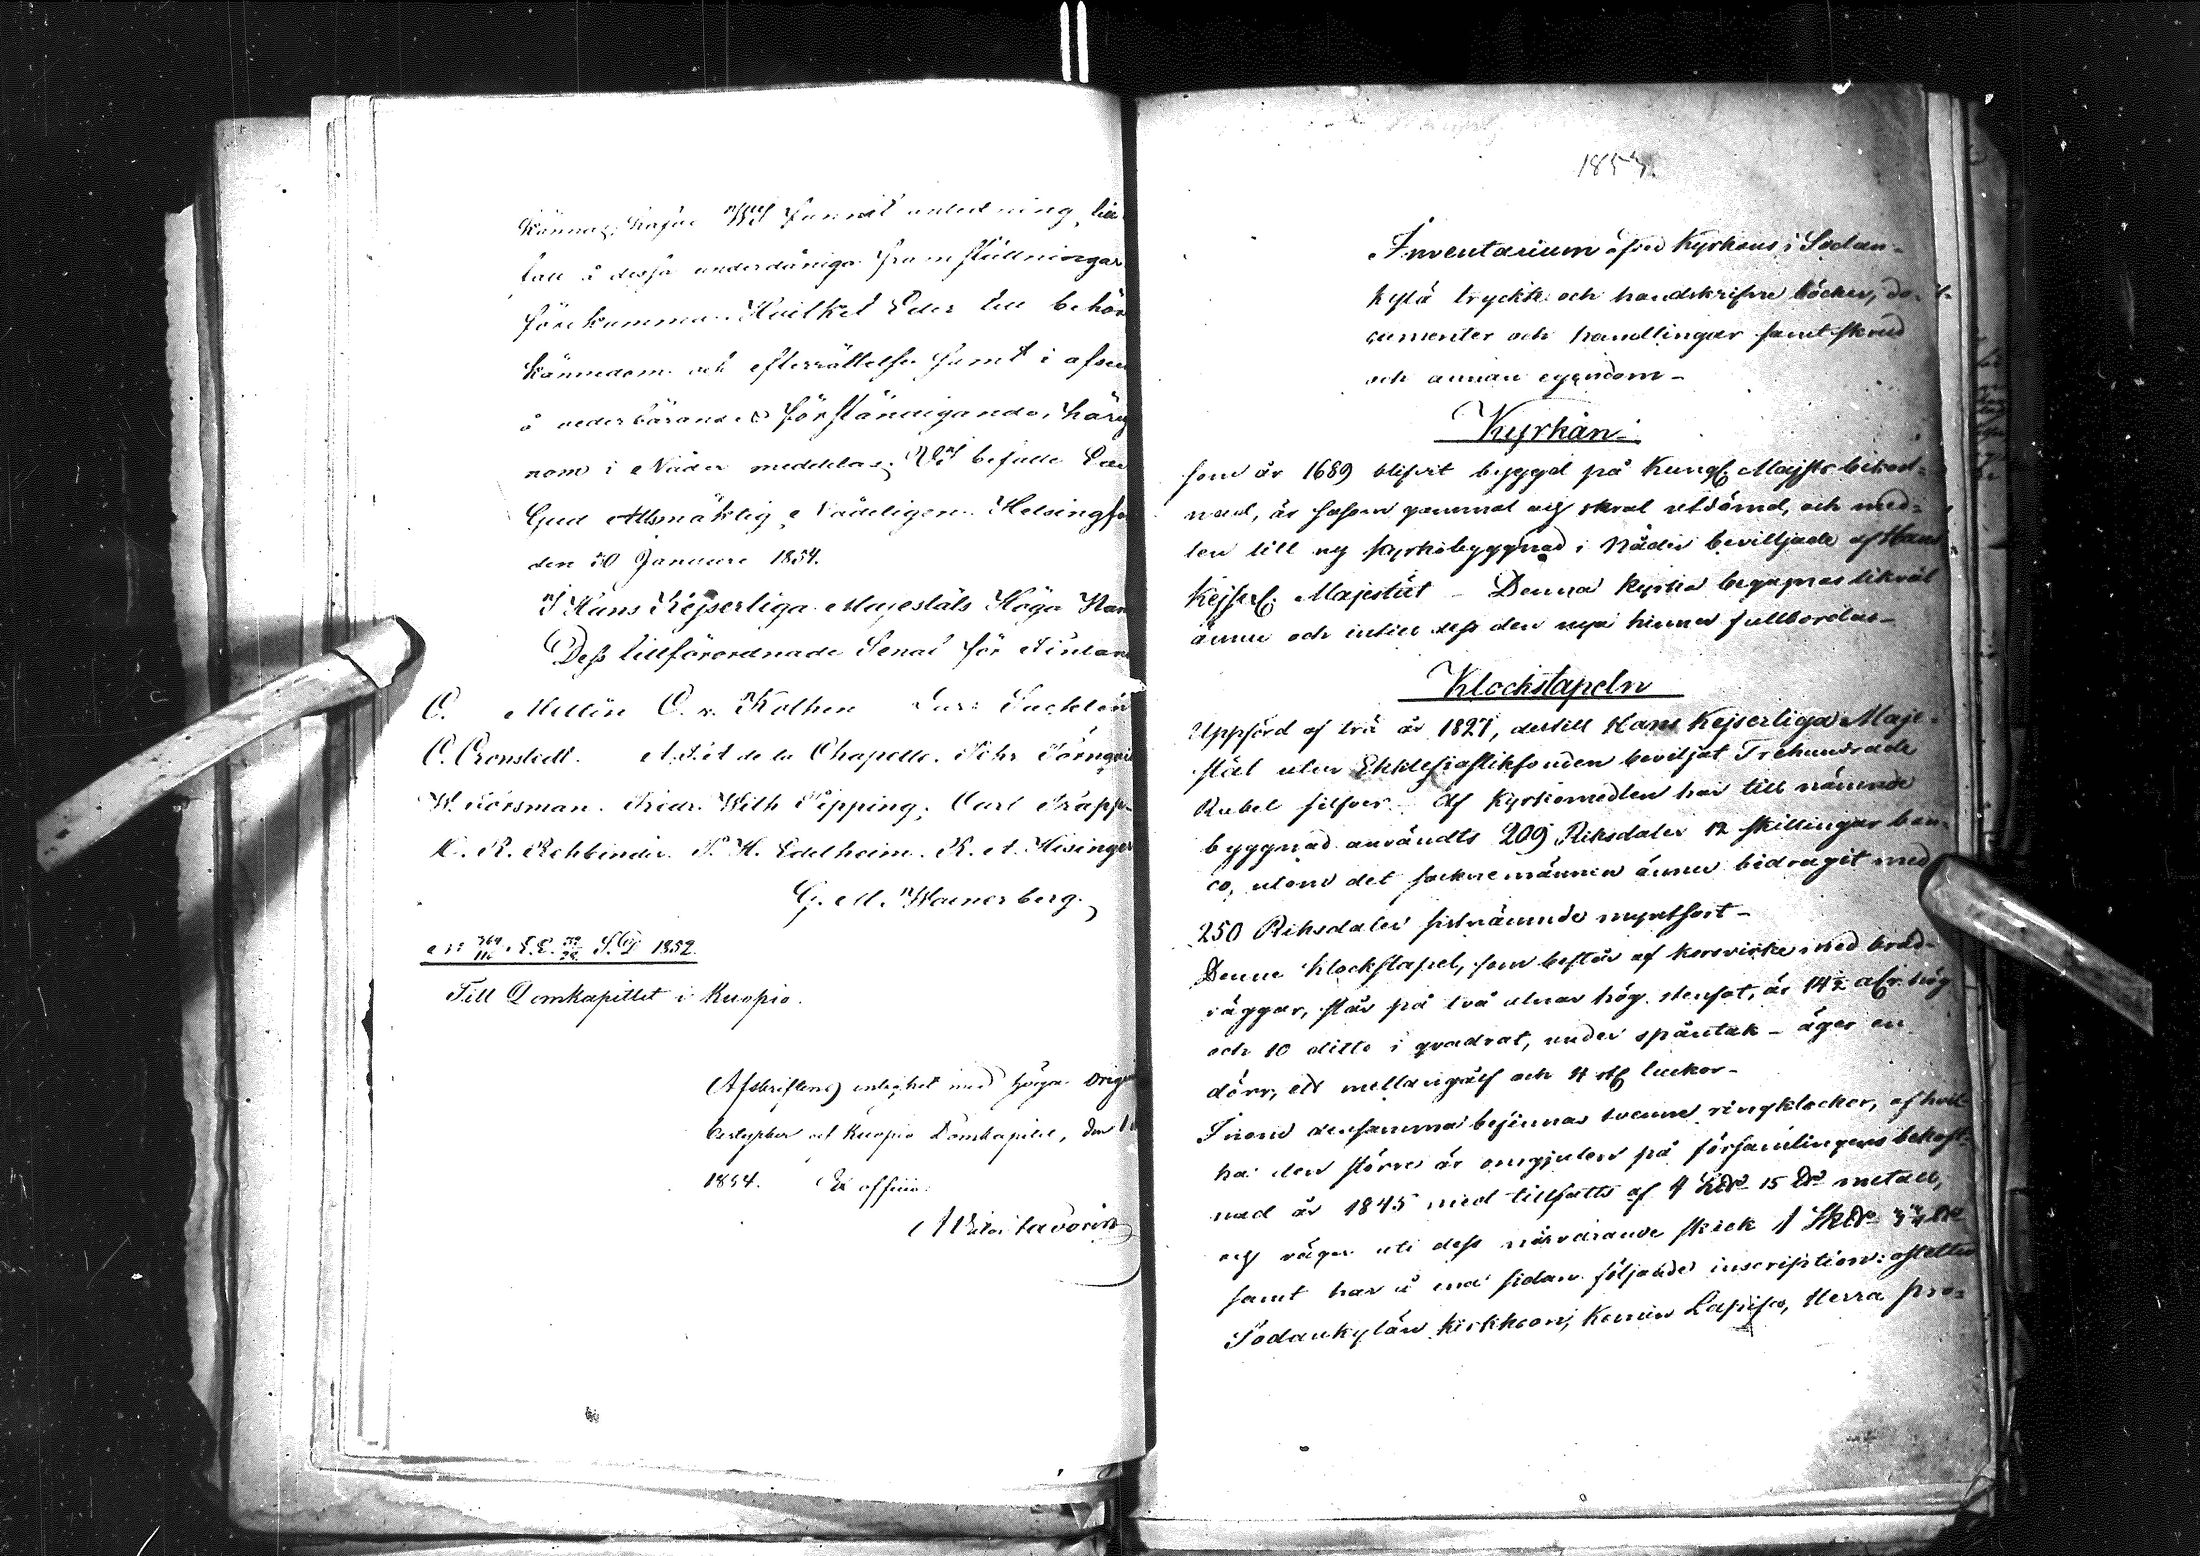 känna, hafve Wi funnit anledning till
tall å dessa underdåniga framställningar
förekomma. Hvilket Eder till behör
kännedom och efterrättelse samt i afse
å vederbörandes förständigande, häri
nom i Nåder meddelas; Wi befalle Eder
Gud Allsmäktig Nådeligen. Helsingfo
den 30 Januari 1854.
I Hans Kejserliga Majestäts Höga Nam
Dess tillförordnade Senat för Finlan
C. Mellin O. v. Kothen Lars Sackleen
C. Cronstedt. A. F. A. de la Chapelle. Fehr Törnqvi
W. Forsman. Fredr. Wilh Pipping. Carl Trapp
K. R. Rehbinder. S. H. Edelheim. K. A. Hisinger
G. M. Wænerberg.
S.D 1852.
Till Domkapitlet i Kuopio.
Afskriftens enlighet med höga orig
betygher och Kuopio Domkapitel, den
1854. Ex officio:
1854.
Inventarium öfver Kyrkans i Sodan-
kylä tryckte och handskrifne böcker, do-
cumenter och handlingar samt skrud
och annan egendom -
Kyrkan
som år 1689 blifvit byggd på Kungl. Maj:sts bekost-
nad, är såsom gammal och skral utdömd, och med-
len till ny kyrkobyggnad i Nåder beviljade af Hans
Kejserl. Majestät - Denna kyrka begagnas likväl
ännu och intill dess den nya hinner fullbordas -
Klockstapeln
Uppförd af trä år 1827, dertill Hans Kejserliga Maje-
stät utur Ekklesiastikfonden beviljat Trehundrade
Rubel silfver. Af Kyrkomedlen har till nämnde
byggnad användts 209 Riksdaler 12 skillingar ban-
co, utom det sockne männen ännu bidragit med
250 Riksdaler sistnämnde myntsort -
Denne klockstapel, som består af korsvirke med bräd-
väggar, står på två alnar hög stenfot, är 14½ alnr. hög
och 10 ditto i qvadrat, under spåntak - äger en
dörr, ett mellangolf och 4 st luckor -
Inom densamma befinnas tvenne ringklockor, af hvil-
ka den större är omgjuten på församlingens bekost-
nad år 1845 med tillsatts af 4 L℔ 15 ℔ metall,
och väger uti dess närvarande skick 1 Sk℔
samt har å ena sidan följande inscription:
Sodankylän kirkkoon, Kemin Lapissa, Herra pro-